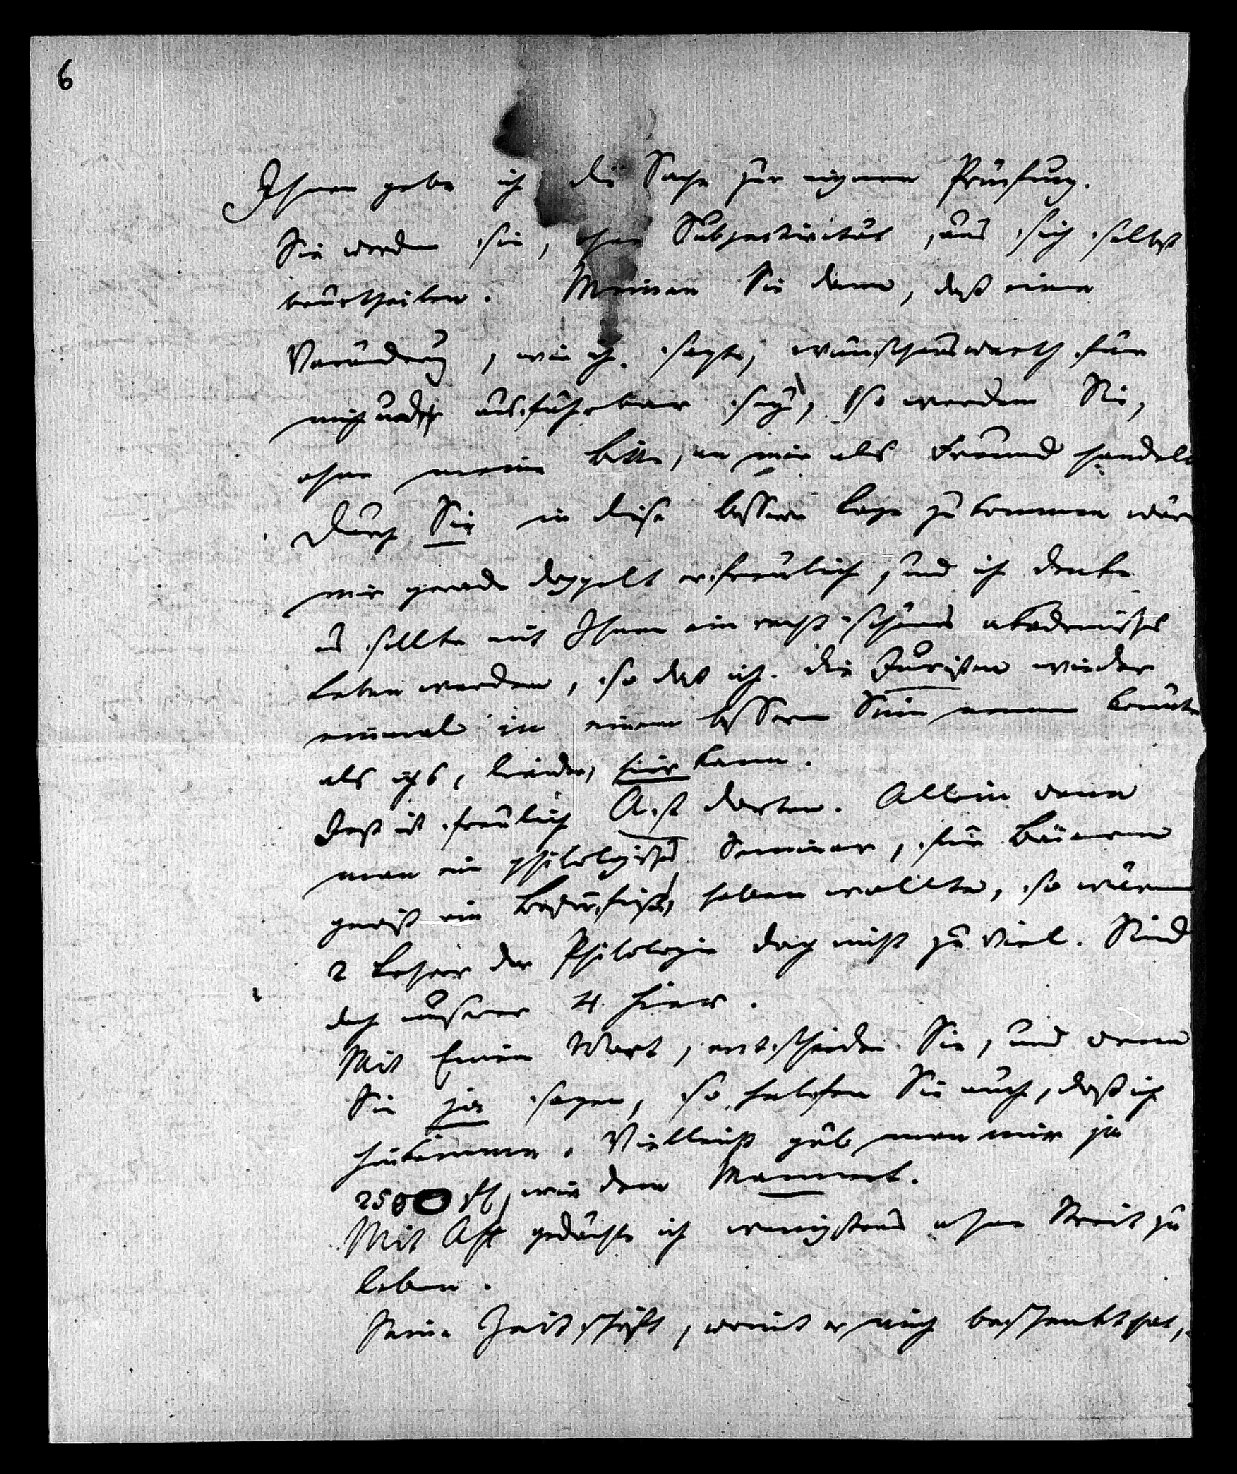 6
Ihnen gebe ich die Sache zur eigenen Prüfung.
Sie werden sie, ohne Subjectivität, aus sich selbst
beurtheilen. Meinen Sie dann, daß eine
Veränderung, wie ich sagte, wünschenswerth für
mich und ausführbar sey, so werden Sie,
ohne meine Bitte, an mir als Freund handeln
Durch Sie in diese bessere Lage zu kommen wäre
mir gerade doppelt erfreulich, und ich denke
es sollte mit Ihnen ein recht schönes akademisches
Leben werden, so daß ich die Juristen wieder
einmal in einem bessern Sinn nennen könnte
als ichs, leider, hier kann.
Jezt ist freilich Ast dorten. Allein wenn
man ein philologisches Seminar, für Baiern
gewiß ein Bedürfniß, haben wollte, so wären
2 Lehrer der Philologie doch nicht zu viel. Sind
doch unserer 4 hier.
Mit Einem Wort, entscheiden Sie, und wenn
Sie ja sagen, so helfen Sie auch, daß ich
hinkomme. Vielleicht gäb man mir ja
2500 fl, wie dem
Mit Ast gedächte ich wenigstens ohne Streit zu
leben.
Seine Zeitschrift, womit er mich beschenkt hat,